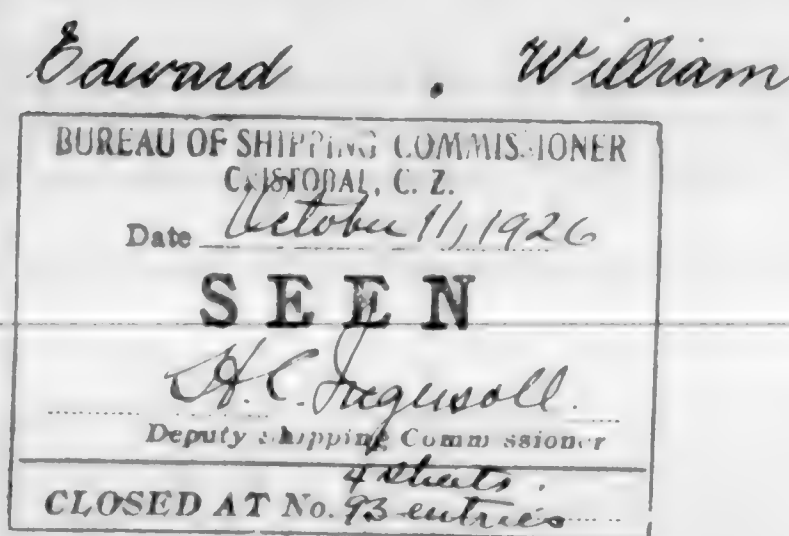 Edward . William
BUREAU OF SHIPPING COMMISSIONER
CRISTOBAL, C. Z.
Date October 11, 1926
SEEN
H. C. Ingersoll.
Deputy Shipping Commissioner
4 sheets.
CLOSED AT No. 93 entries